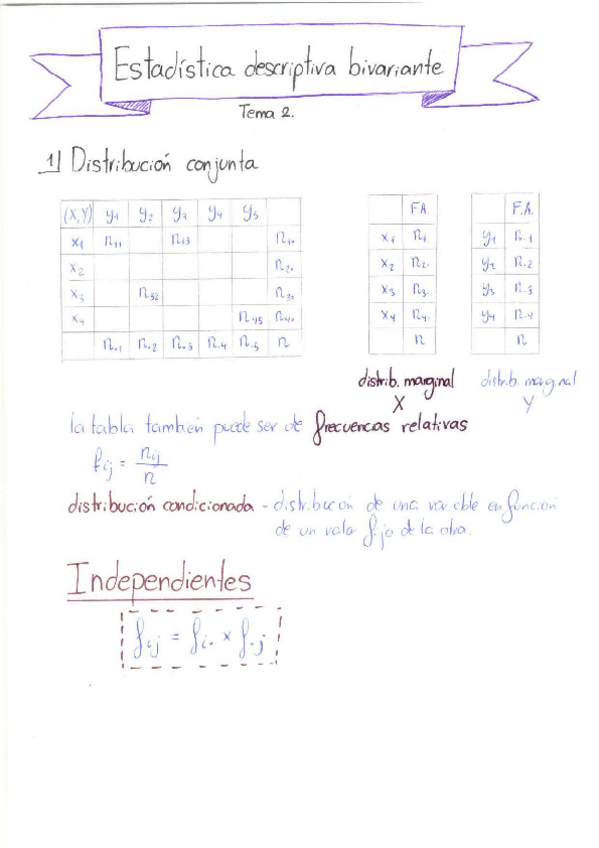 Estadística descriptiva bivariante
Tema 2.
1) Distribución conjunta
(X,Y) y1 y2 y3 y4 y5
x1 n11 n13 n1.
x2 n2.
x3 n32 n3.
x4 n45 n4.
n.1 n.2 n.3 n.4 n.5 n
F.A.
x1 n1.
x2 n2.
x3 n3.
x4 n4.
n
distrib. marginal
X
F.A.
y1 n.1
y2 n.2
y3 n.3
y4 n.4
n
distrib. marginal
Y
la tabla también puede ser de frecuencias relativas
fij = nij / n
distribución condicionada - distribución de una variable en función
de un valor fijo de la otra.
Independientes
fij = fi. × f.j